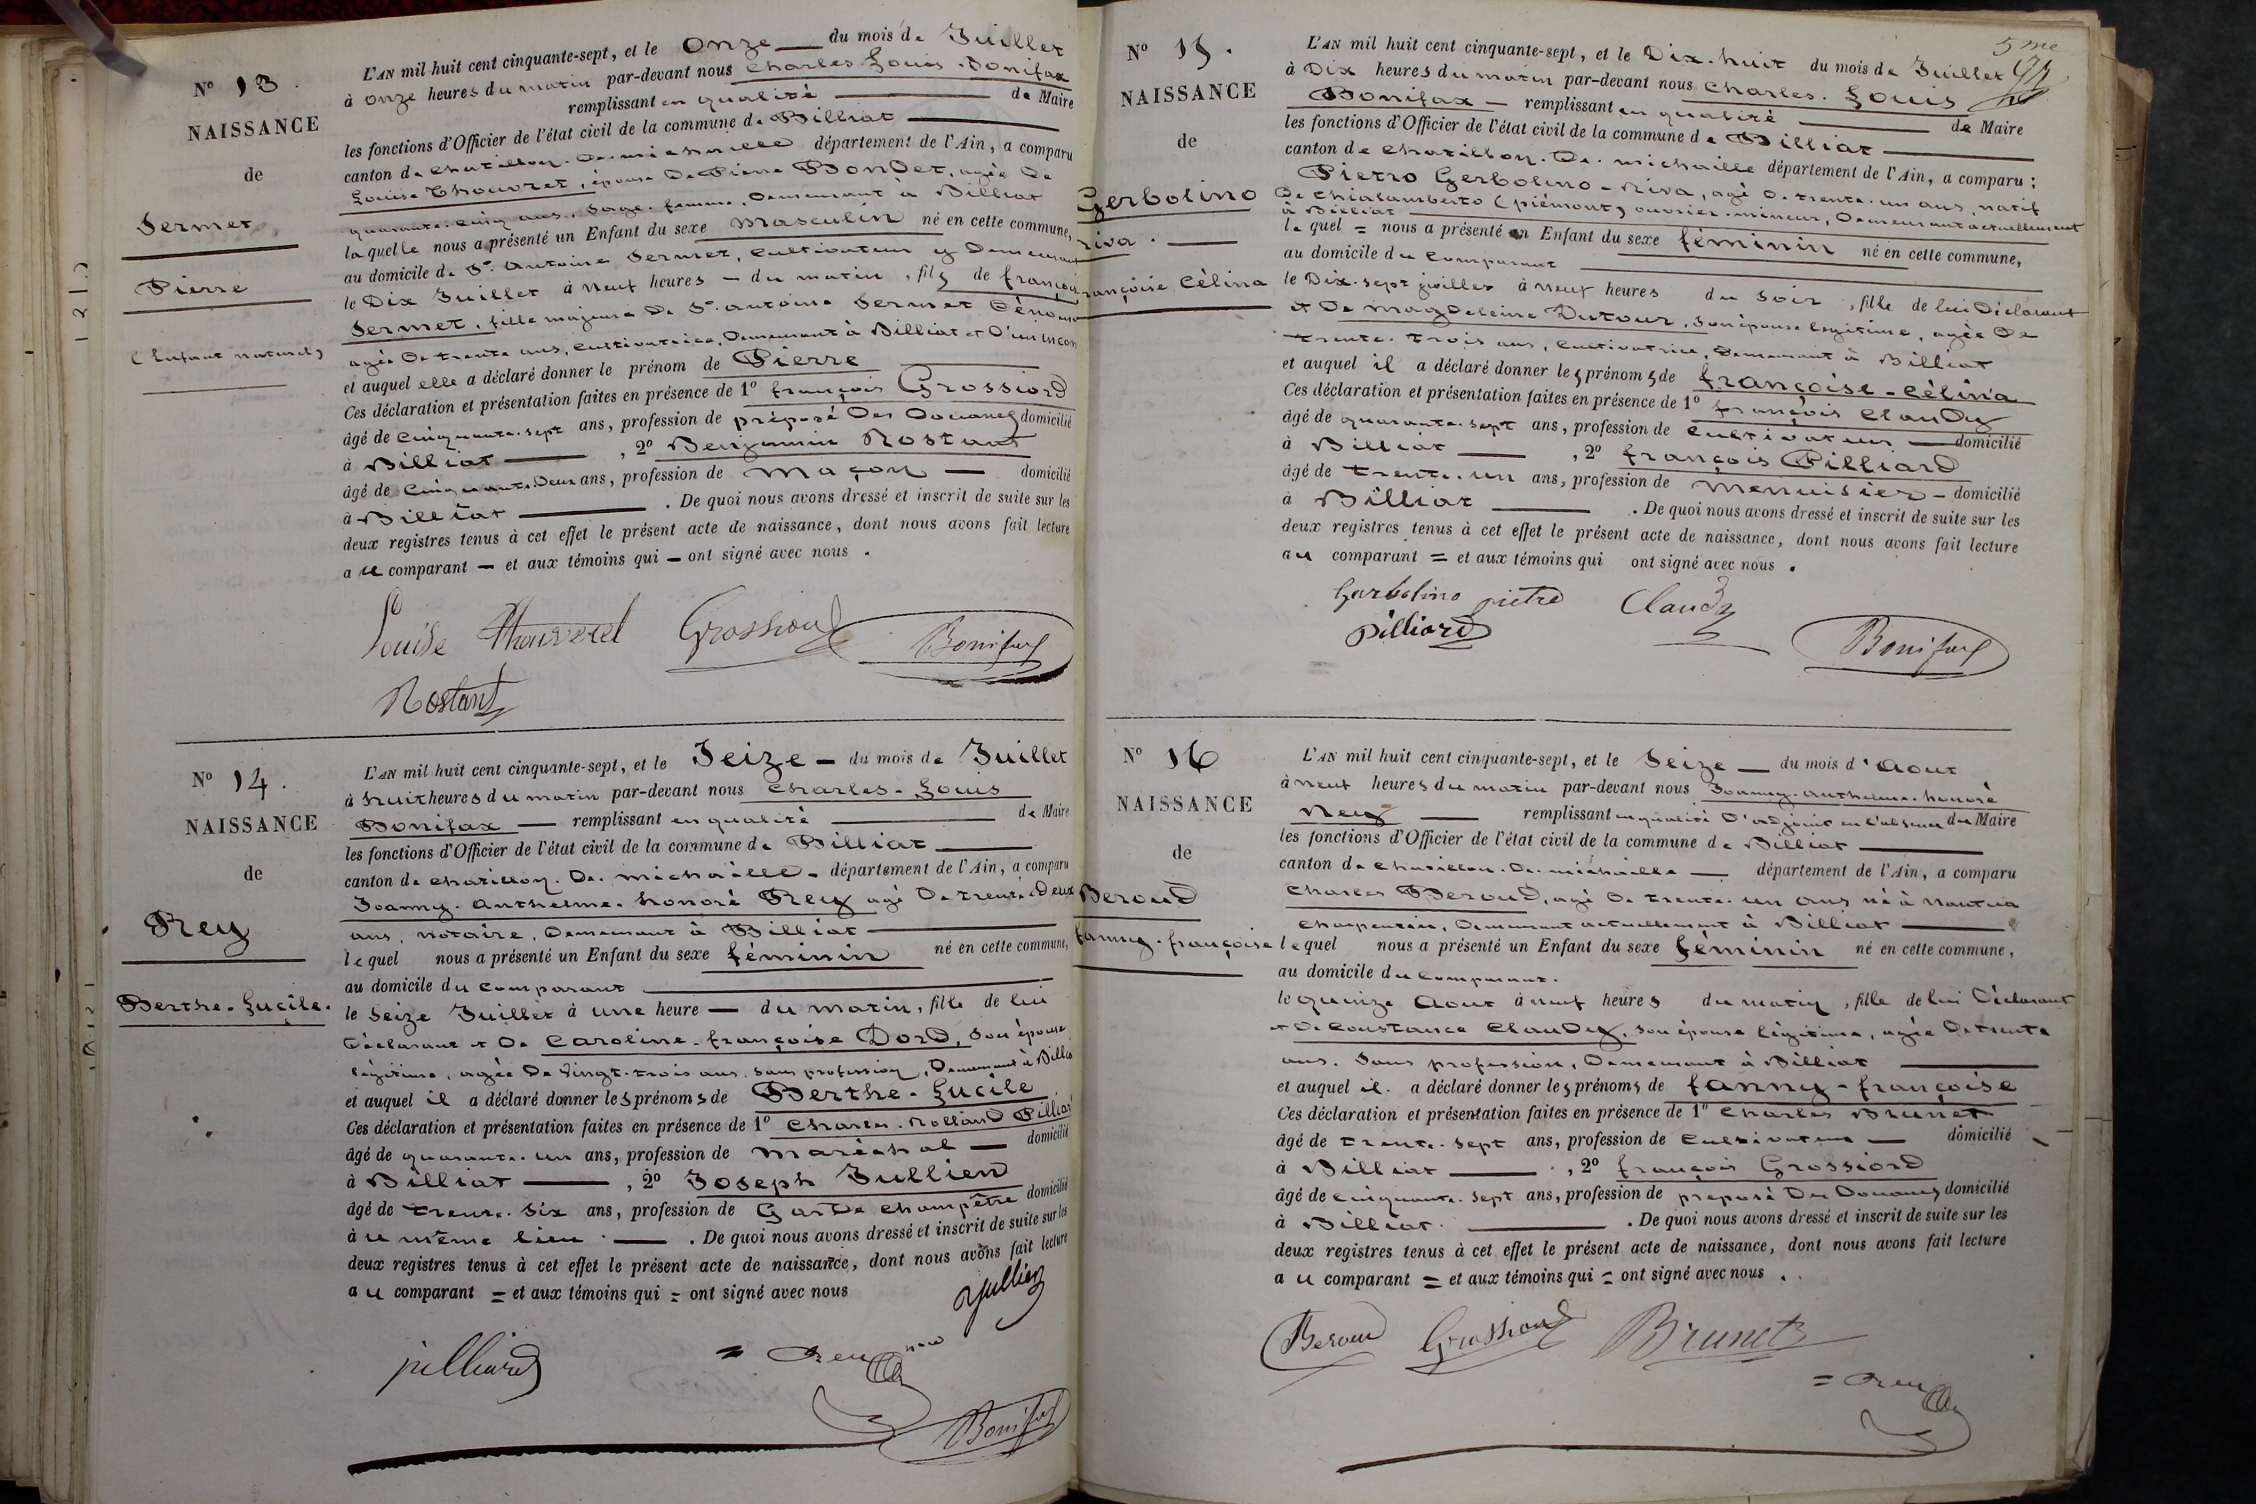 N° 13.
NAISSANCE
de
Sermet,
Pierre
(Enfant naturel)
L'AN mil huit cent cinquante-sept, et le Onze du mois de Juillet
à onze heures du matin par-devant nous Charles Louis Bonifax
remplissant en qualité de Maire
les fonctions d'Officier de l'état civil de la commune de Billiat
canton de Chatillon-De-michaille département de l'Ain, a comparu
Louise Thouvret, épouse De Pierre Bondet, agée De
quarante-cinq ans, Sage-femme, Demeurant à Billiat
laquelle nous a présenté un Enfant du sexe masculin né en cette commune,
au domicile de Sr. Antoine Sermet, Cultivateur y Demeurant
le Dix Juillet à neuf heures du matin, fils de françoise
Sermet, fille majeure De Sr. antoine Sermet Dénommé
agée De trente ans, Cultivatrice, Demeurant à Billiat et D'un incon
et auquel elle a déclaré donner le prénom de Pierre
Ces déclaration et présentation faites en présence de 1° françois Grossiord
âgé de Cinquante-sept ans, profession de préposé Des Douanes domicilié
à Billiat, 2° Benjamin Rostant
âgé de Cinquante Deux ans, profession de maçon domicilié
à Billiat. De quoi nous avons dressé et inscrit de suite sur les
deux registres tenus à cet effet le présent acte de naissance, dont nous avons fait lecture
au comparant et aux témoins qui ont signé avec nous.
Louise Thouveret Grossiord Bonifax
Rostant
N° 14.
NAISSANCE
de
Rey
Berthe-Lucile.
L'AN mil huit cent cinquante-sept, et le Seize du mois de Juillet
à huit heures du matin par-devant nous Charles-Louis
Bonifax remplissant en qualité de Maire
les fonctions d'Officier de l'état civil de la commune de Billiat
canton de Chatillon-De-michaille département de l'Ain, a comparu
Joanny-Anthelme-honoré Rey agé De trente-Deux
ans, notaire, Demeurant à Billiat
lequel nous a présenté un Enfant du sexe féminin né en cette commune,
au domicile du Comparant
le Seize Juillet à une heure du matin, fille de lui
Déclarant et De Caroline-françoise Dord, Son épouse
légitime, agée De Vingt-trois ans, sans profession, Demeurant à Billia
et auquel il a déclaré donner les prénoms de Berthe-Lucile
Ces déclaration et présentation faites en présence de 1° Charles-Rolland Pilliard
âgé de quarante-un ans, profession de maréchal domicilié
à Billiat, 2° Joseph Jullien
âgé de trente-six ans, profession de Garde champêtre domicilié
au même lieu. De quoi nous avons dressé et inscrit de suite sur les
deux registres tenus à cet effet le présent acte de naissance, dont nous avons fait lecture
au comparant = et aux témoins qui = ont signé avec nous
Jullien
pilliard = Rey
Bonifax
5me
N° 15.
NAISSANCE
de
Gerbolino
riva.
françoise Célina
L'AN mil huit cent cinquante-sept, et le Dix-huit du mois de Juillet
à Dix heures du matin par-devant nous Charles-Louis
Bonifax remplissant en qualité de Maire
les fonctions d'Officier de l'état civil de la commune de Billiat
canton de Chatillon-De-michaille département de l'Ain, a comparu:
Pietro Gerbolino-Riva, agé De trente-un ans, natif
De Chialamberto (piémont) ouvrier-mineur, Demeurant actuellement
à Billiat
lequel = nous a présenté un Enfant du sexe féminin né en cette commune,
au domicile du Comparant
le Dix-sept juillet à neuf heures du soir, fille de lui Déclarant
et De Magdeleine Dutour, Son épouse légitime, agée De
trente-trois ans, Cultivatrice, Demeurant à Billiat
et auquel il a déclaré donner les prénoms de françoise-Célina
Ces déclaration et présentation faites en présence de 1° françois Claudy
âgé de quarante-sept ans, profession de Cultivateur domicilié
à Billiat, 2° françois Pilliard
âgé de trente-un ans, profession de menuisier domicilié
à Billiat. De quoi nous avons dressé et inscrit de suite sur les
deux registres tenus à cet effet le présent acte de naissance, dont nous avons fait lecture
au comparant = et aux témoins qui ont signé avec nous.
Gerbolino pietro Claudy
Pilliard Bonifax
N° 16
NAISSANCE
de
Beroud
fanny-françoise
L'AN mil huit cent cinquante-sept, et le Seize du mois d'Aout
à neuf heures du matin par-devant nous Joanny-Anthelme-honoré
Rey remplissant en qualité D'adjoint en l'absence du Maire
les fonctions d'Officier de l'état civil de la commune de Billiat
canton de Chatillon-De-michaille département de l'Ain, a comparu
Charles Beroud, agé De trente-un ans né à Nantua
Charpentier, Demeurant actuellement à Billiat
lequel nous a présenté un Enfant du sexe féminin né en cette commune,
au domicile du Comparant.
le quinze Aout à neuf heures du matin, fille de lui Déclarant
et De Constance Claudy, son épouse légitime, agée De trente
ans, Sans profession, Demeurant à Billiat
et auquel il a déclaré donner les prénoms de fanny-françoise
Ces déclaration et présentation faites en présence de 1° Charles Brunet
âgé de trente-sept ans, profession de Cultivateur domicilié
à Billiat, 2° françois Grossiord
âgé de Cinquante-sept ans, profession de préposé Des Douanes domicilié
à Billiat. De quoi nous avons dressé et inscrit de suite sur les
deux registres tenus à cet effet le présent acte de naissance, dont nous avons fait lecture
au comparant = et aux témoins qui = ont signé avec nous.
Beroud Grossiord Brunet
= Rey